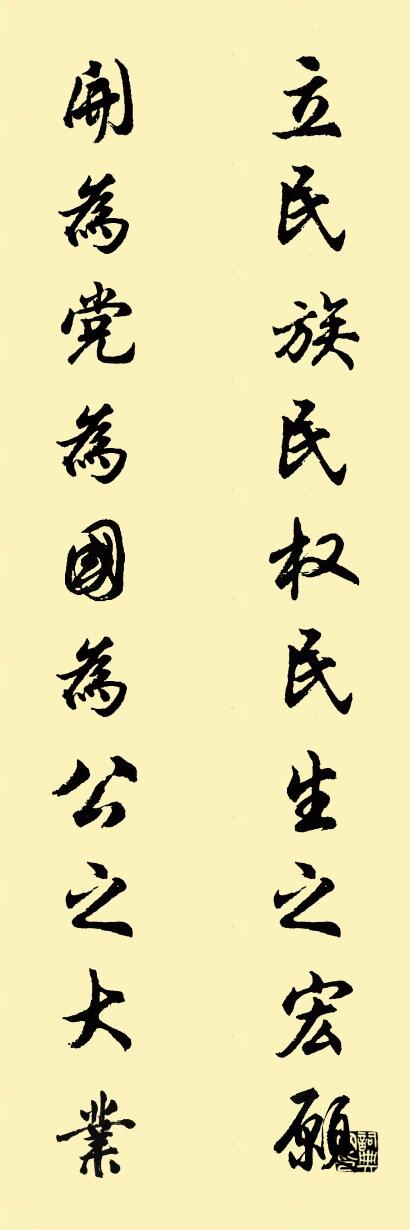 立民族民权民生之宏愿
開為党為國為公之大業